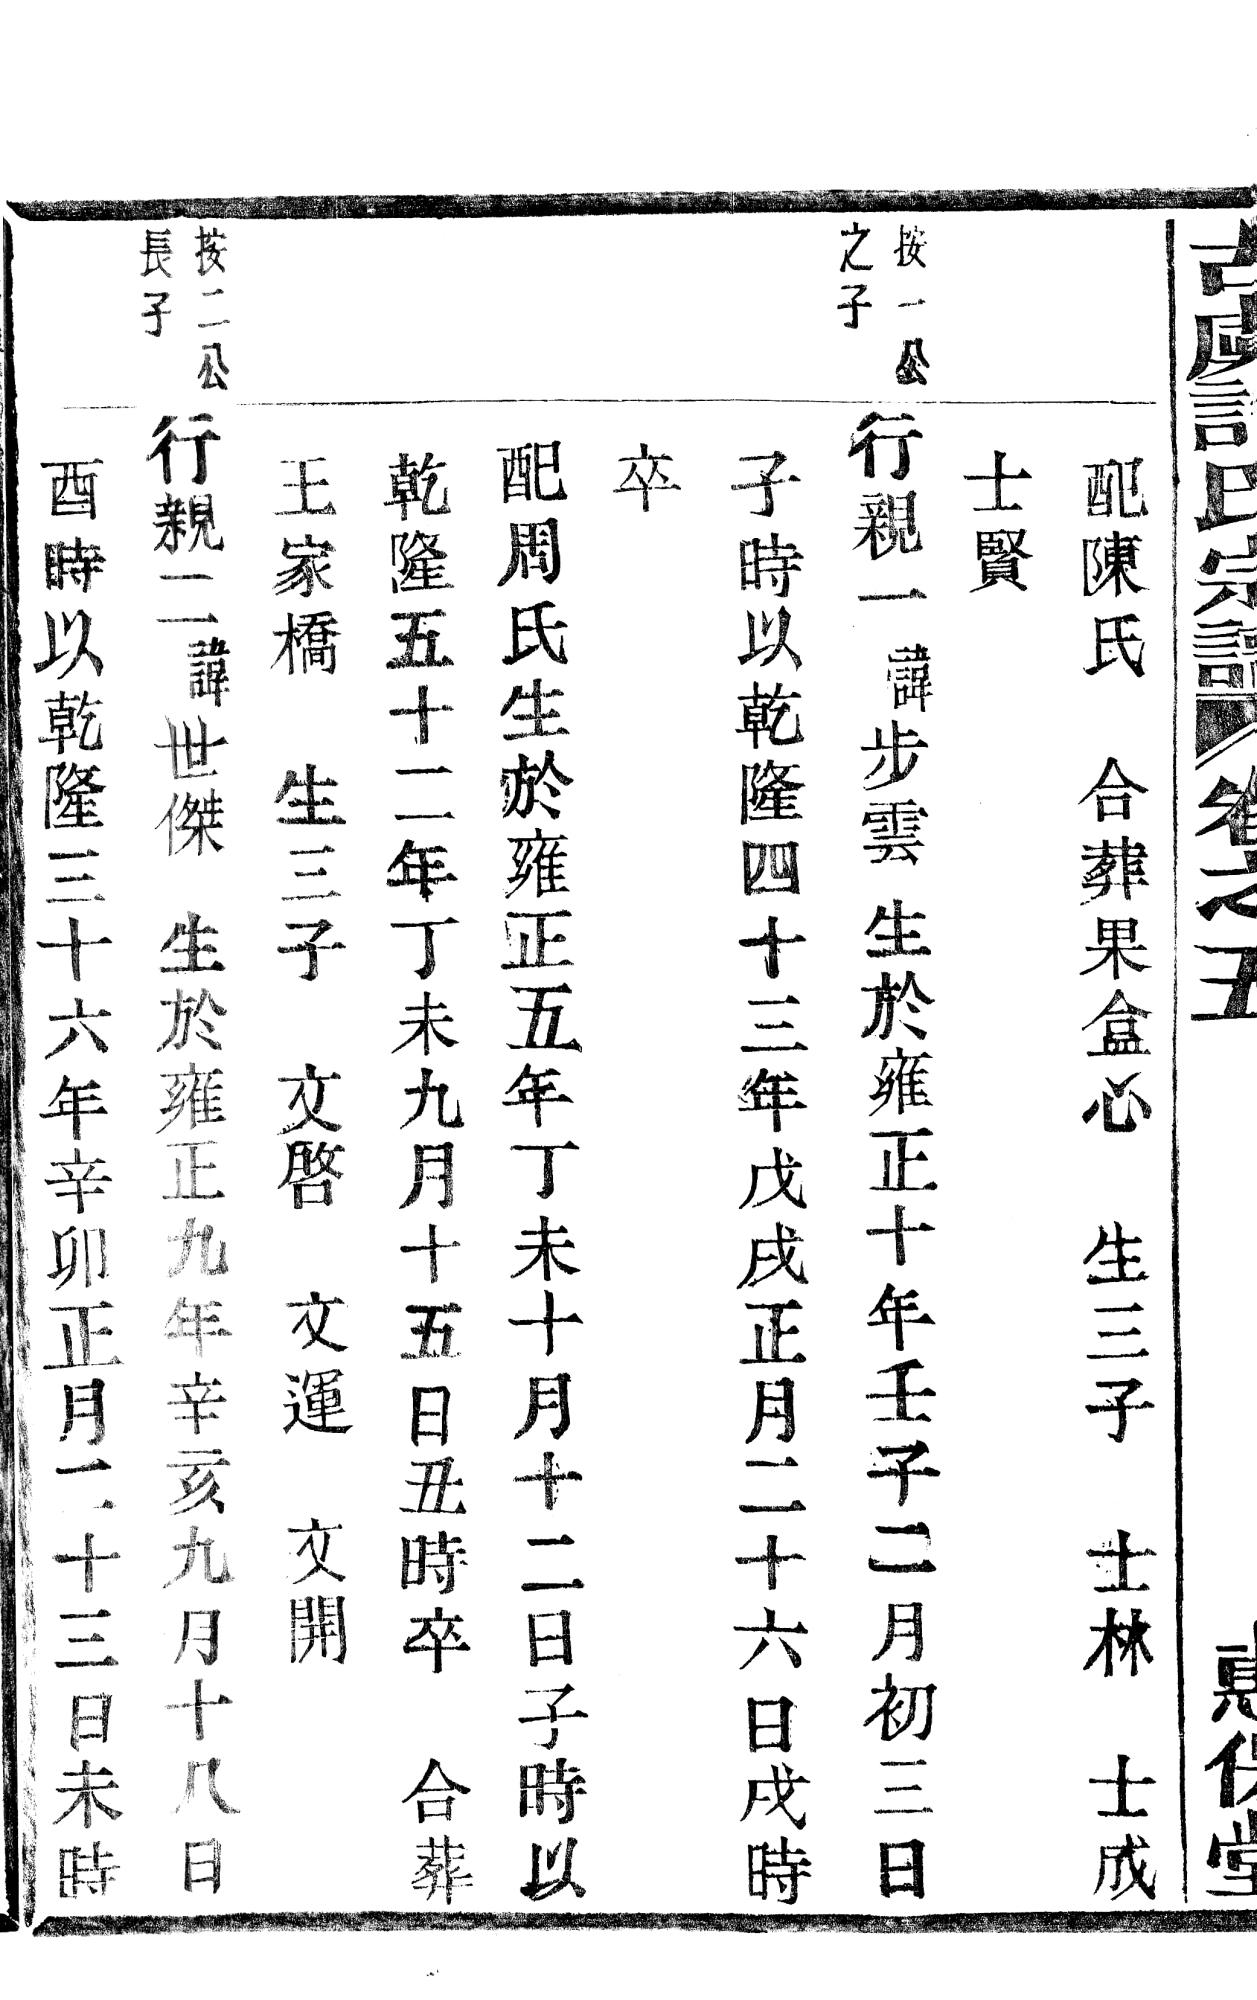 古虞許氏宗譜 卷之五 堂
配陳氏 合葬果盒心 生三子 士林 士成
士賢
按一公
之子
行親一 諱步雲 生於雍正十年壬子二月初三日
子時以乾隆四十三年戊戌正月二十六日戌時
卒
配周氏生於雍正五年丁未十月十二日子時以
乾隆五十二年丁未九月十五日丑時卒 合葬
王家橋 生三子 文啓 文運 文開
按二公
長子
行親二 諱世傑 生於雍正九年辛亥九月十八日
酉時以乾隆三十六年辛卯正月二十三日未時